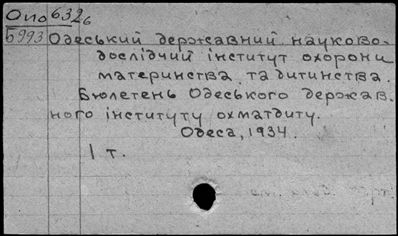 Опо 6326
5993 Одеський державний науково-
дослідчий інститут охорони
материнства та дитинства.
Бюлетень Одеського держав
ного інституту охматдиту.
Одеса, 1934.
1 т.